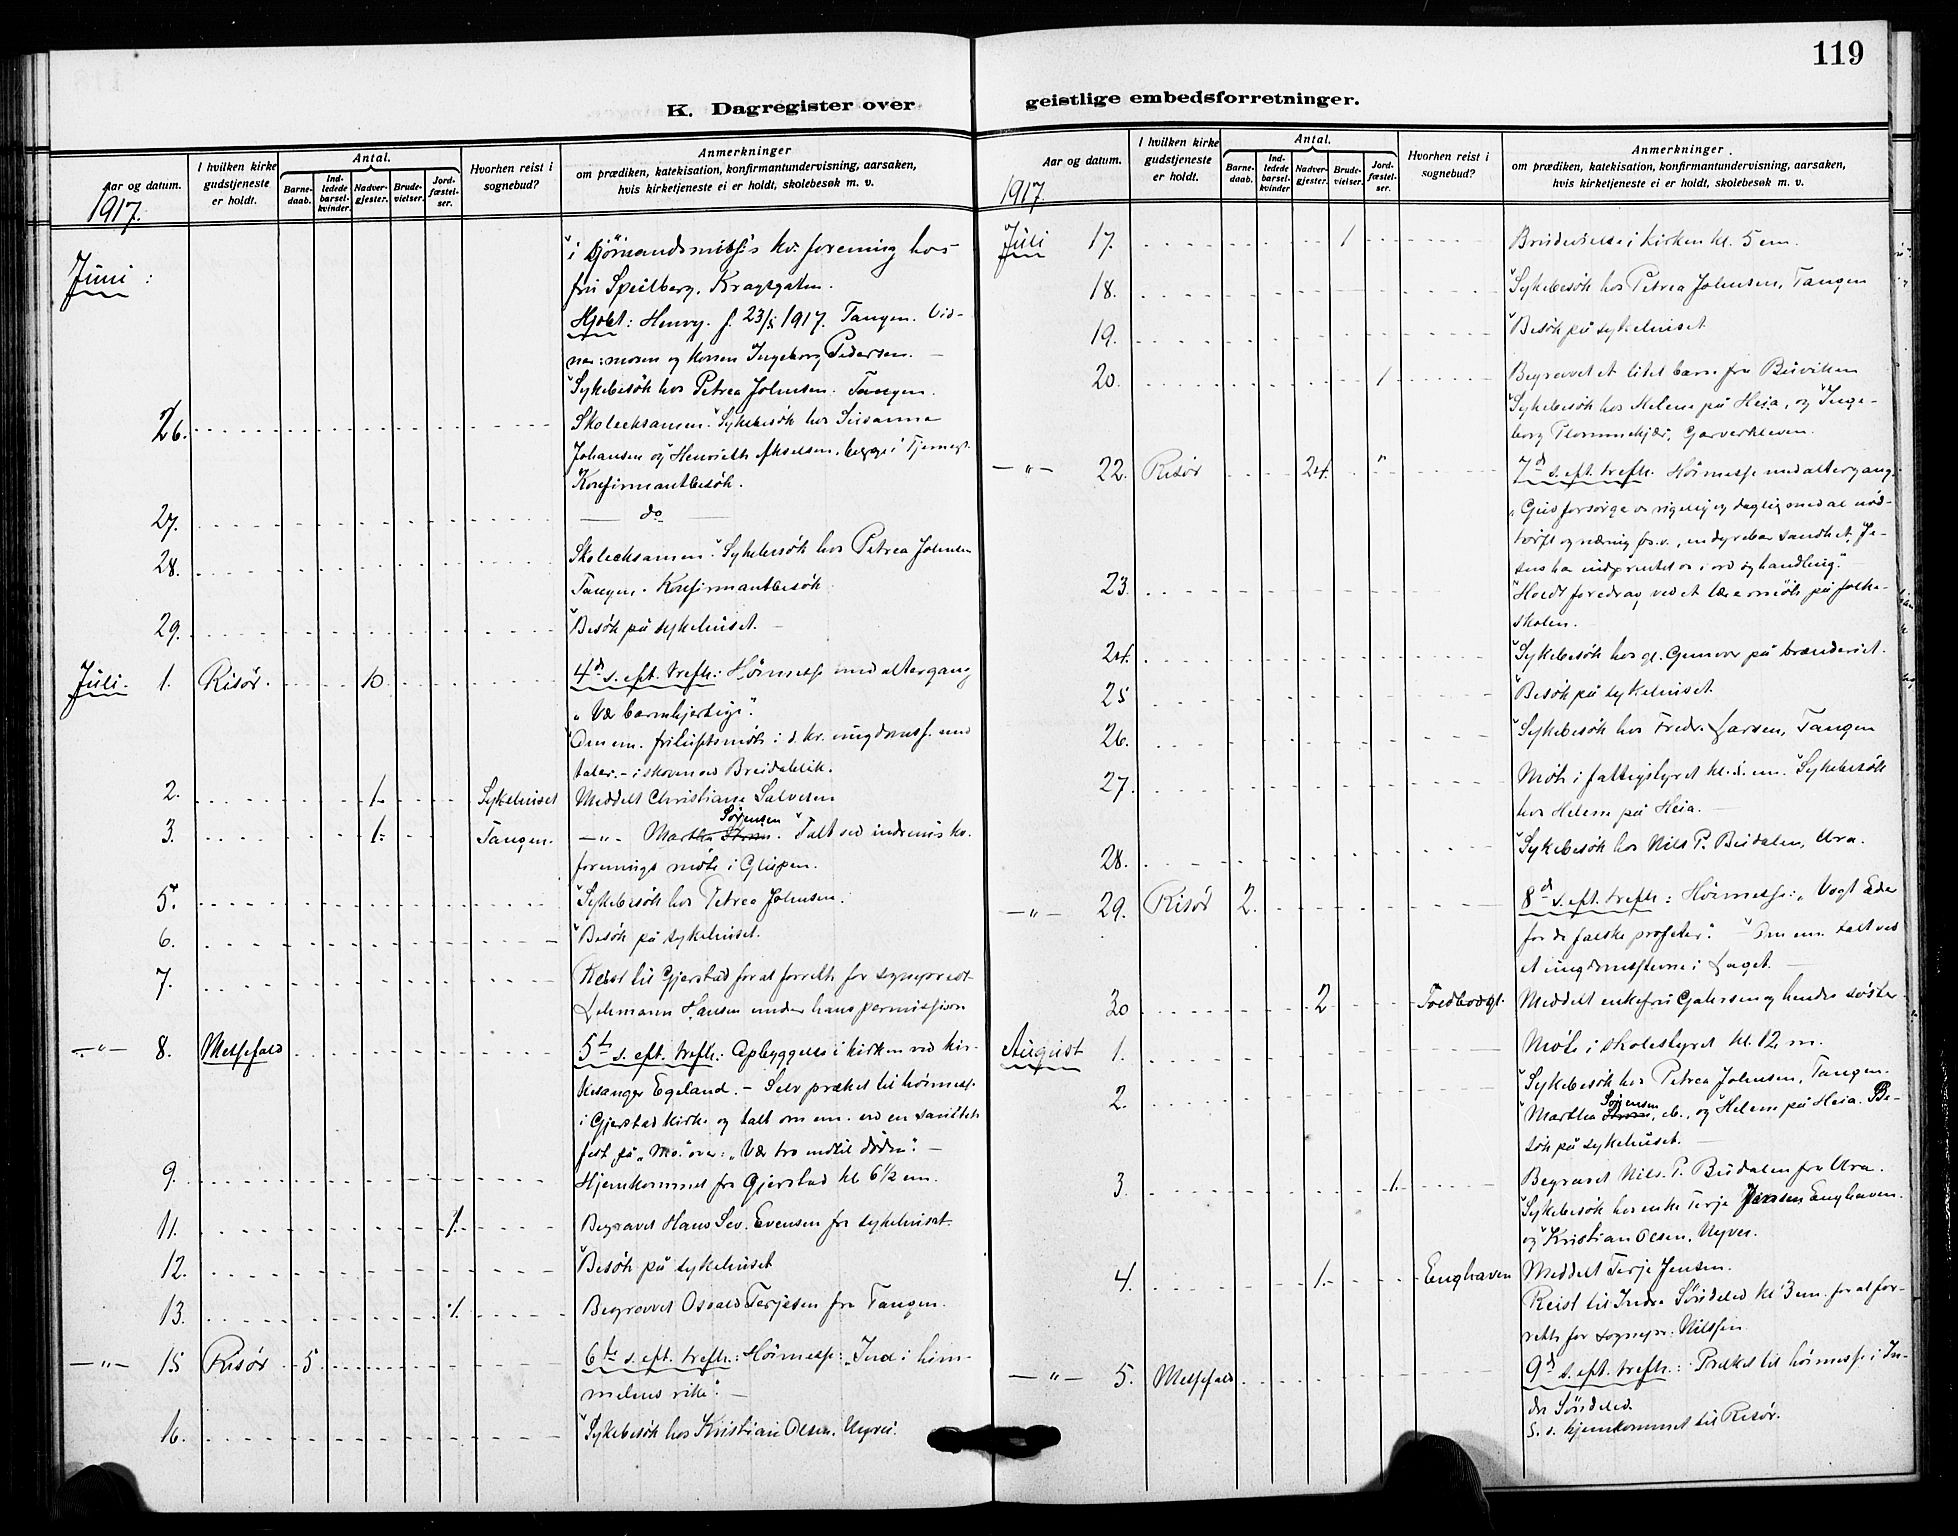 119
K. Dagregister over geistlige embedsforretninger.
Aar og datum.
I hvilken kirke gudstjeneste er holdt.
Antal.
Barne-daab.
Ind-ledede barsel-kvinder.
Nadver-gjester.
Brude-vielser.
Jord-fæstel-ser.
Hvorhen reist i sognebud?
Anmerkninger
om prædiken, katekisation, konfirmantundervisning, aarsaken,
hvis kirketjeneste ei er holdt, skolebesøk m. v.
1917.
Juni :
forening hos
fru Speilberg, Kragsgaten.
Hjdbt: Henry f. 23/5 1917. Tangen. Vid-
ner: moren og Ingeborg Pedersen.
Sykebesøk hos Petrea Johnsen. Tangen.
26. Skoleeksamen. Sykebesøk hos Susanna
Johansen og Henriette Akselsen, begge i Tjernegt.
Konfirmantbesøk.
27. do
28. Skoleeksamen. Sykebesøk hos Petrea Johnsen
Tangen. Konfirmantbesøk
29. Besøk på sykehuset.
Juli. 1. Risør. 10. 4d s. eft. trefh.: Høimesse med altergang
"Vær barmhjertige".
Om em. friluftsmøte i d. kr. ungdomsf. med
taler. - i skoven ved Breidablik.
2. 1. Sykehuset Meddelt Christiane Salvesen
3. 1. Tangen. -"- Martha Sørensen. Talt ved indremis. kv.
forenings møte i Glupen.
5. Sykebesøk hos Petrea Johnsen.
6. Besøk på sykehuset.
7. Reist til Gjerstad for at forrette for sogneprest
Lehmann Hansen under hans permission
-"- 8. Messefald 5te s. eft. trefh.: Opbyggelse i kirken ved kir-
kesanger Egeland. - Selv præket til høimesse
i Gjerstad kirke og talt om em. ved en sanitets
fest på "Mo" over: "Vær tro indtil døden". -
9. Hjemkommet fra Gjerstad kl 6 1/2 em.
11. 1. Begravet Hans Sev. Evensen fra sykehuset
12. Besøk på sykehuset
13. 1. Begravet Osvald Terjesen fra Tangen.
-"- 15 Risør 5 6te s. eft. trefh.: Høimesse: "Ind i him-
melens rike". -
16. Sykebesøk hos Kristian Olsen, Uyvei.
Aar og datum.
I hvilken kirke gudstjeneste er holdt.
Antal.
Barne-daab.
Ind-ledede barsel-kvinder.
Nadver-gjester.
Brude-vielser.
Jord-fæstel-ser.
Hvorhen reist i sognebud?
Anmerkninger.
om prædiken, katekisation, konfirmantundervisning, aarsaken,
hvis kirketjeneste ei er holdt, skolebesøk m. v.
1917.
Juli 17. 1 Brudevielse i kirken kl. 5 em.
18. Sykebesøk hos Petrea Johnsen, Tangen
19. Besøk på sykehuset
20. 1 Begravet et litet barn fra Buviken
Sykebesøk hos Helene på Heia, og Inge-
borg Plommekjær, Garverkleven.
-"- 22. Risør 24. " 7d s. eft. trefh. Høimesse med altergang.
"Gud forsørge os rigelig og daglig med al nød-
tørft og næring", en dyrebar sandhet, Je-
sus har indprentet os i ord og handling".
23. Holdt foredrag ved et læremøte på folke-
skolen.
24. Sykebesøk hos gl. Gunvor på brænderiet.
25 Besøk på sykehuset.
26. Sykebesøk hos Fredr. Larsen, Tangen
27. Møte i fattigstyret kl. 5 em. Sykebesøk
hos Helene på Heia. -
28. Sykebesøk hos Nils P. Buдalen, Ura.
-"- 29. Risør 2. 8d s. eft. trefh: Høimesse: "Vogt Eder
for de falske profeter". Om em. talt ved
et ungdomsstevne i Laget. -
30 2 Toldbodgt. Meddelt enkefru og hendes søster
August 1. Møte i skolestyret kl. 12 m.
2. Sykebesøk hos Petrea Johnsen, Tangen.
Martha Sørensen, do., og Helene på Heia. Be-
søk på sykehuset. -
3. 1. Begravet Nils P. Budalen fra Ura.
Sykebesøk hos enke Terje Jensen Enghaven.
og Kristian Olsen, Uyvei.
4. 1. Enghaven Meddelt Terje Jensen.
Reist til Indre Søndeled kl. 3 em. for at for-
rette for sognepr. Nilssen.
-"- 5. Messefald 9d s. eft. trefh.: Præket til høimesse i In-
dre Søndeled.
S. d. hjemkommet til Risør.